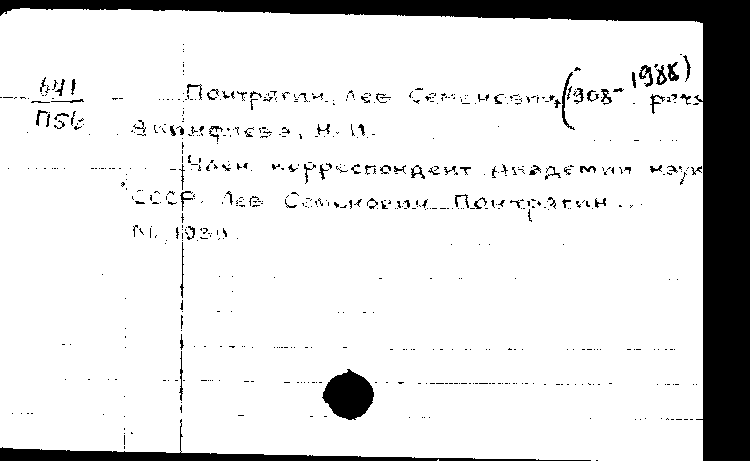 641
П56
Понтрягин, Лев Семенович, (1908- 1988) pers
Акинфиева, Н. И.
Член корреспондент Академии наук
СССР Лев Семенович Понтрягин...
М.,